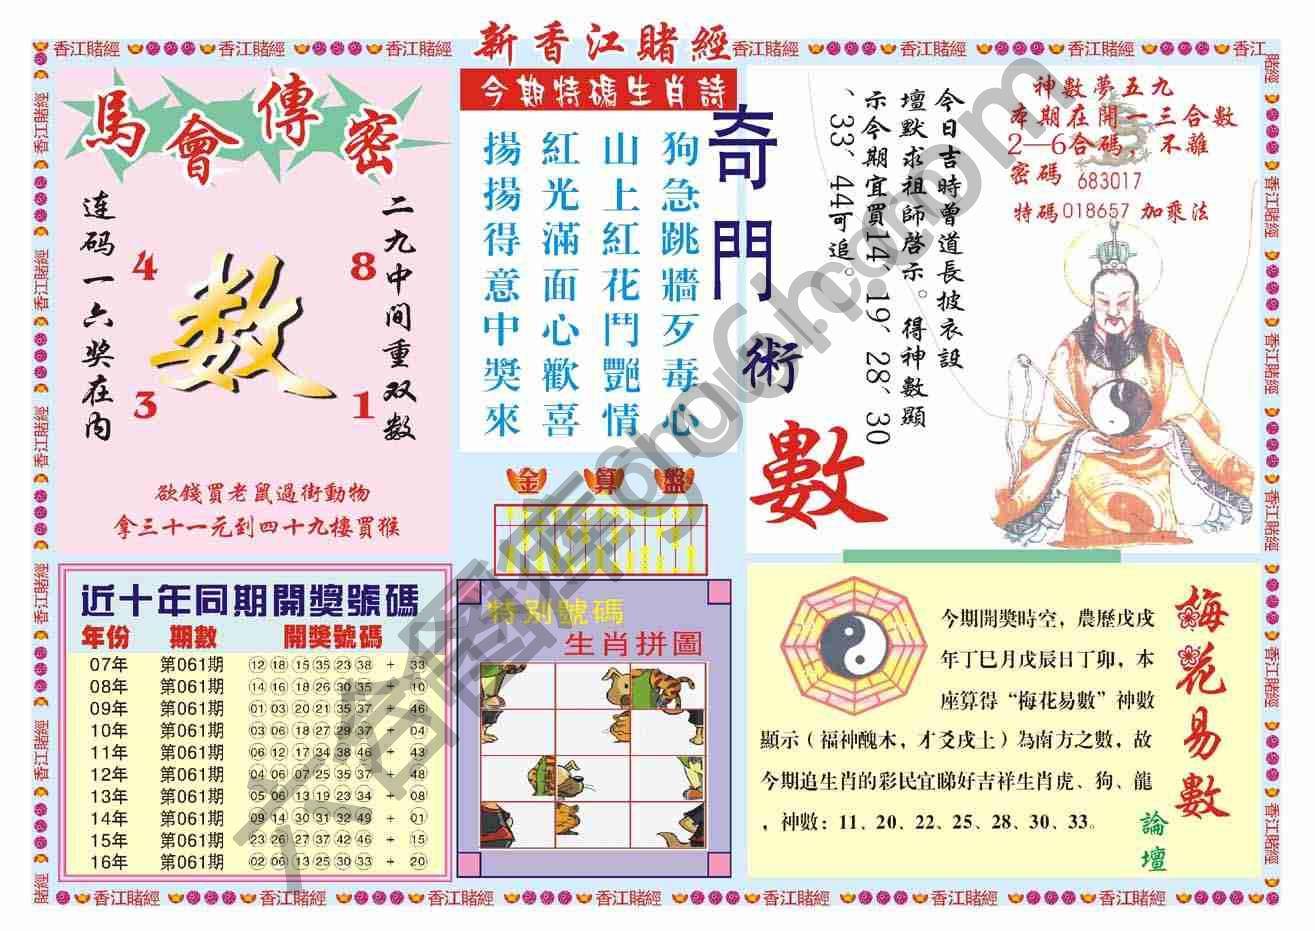 新香江賭經
馬會傳密
二九中間重双数
连码一六奖在内
4
8
数
3
1
欲錢買老鼠過街動物
拿三十一元到四十九樓買猴
今期特碼生肖詩
狗急跳牆歹毒心
山上紅花鬥艷情
紅光滿面心歡喜
揚揚得意中獎來
金算盤
奇門術數
今日吉時曾道長披衣設
壇默求祖師啓示。得神數顯
示今期宜買14、19、28、30
、33、44可追。
神數夢五九
本期在開一三合數
2—6合碼，不離
密碼 683017
特碼018657 加乘法
近十年同期開獎號碼
年份 期數 開獎號碼
07年 第061期 12 18 15 35 23 38 + 33
08年 第061期 14 16 18 26 30 35 + 10
09年 第061期 01 03 20 21 35 37 + 46
10年 第061期 03 06 18 27 29 37 + 04
11年 第061期 06 12 17 34 38 46 + 43
12年 第061期 04 06 07 25 35 37 + 48
13年 第061期 05 06 13 19 23 34 + 08
14年 第061期 09 14 30 31 32 49 + 01
15年 第061期 23 26 27 37 42 46 + 15
16年 第061期 02 06 13 25 30 33 + 20
特别號碼
生肖拼圖
梅花易數
論壇
今期開獎時空，農歷戊戌
年丁巳月戊辰日丁卯，本
座算得“梅花易數”神數
顯示（福神醜木，才爻戌土）為南方之數，故
今期追生肖的彩民宜睇好吉祥生肖虎、狗、龍
，神數：11、20、22、25、28、30、33。
香江賭經